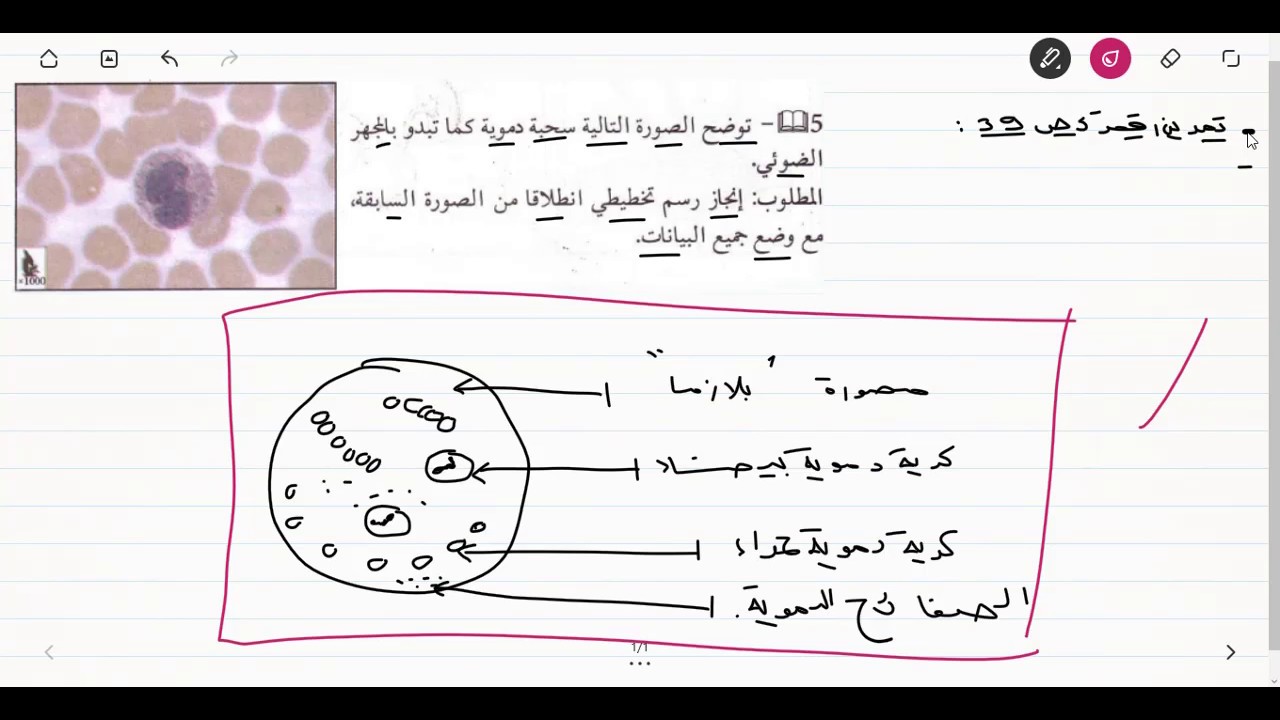 تمرين رقم 5 ص 39 :
5 – توضح الصورة التالية سحبة دموية كما تبدو بالمجهر
الضوئي.
المطلوب: إنجاز رسم تخطيطي انطلاقا من الصورة السابقة،
مع وضع جميع البيانات.
×1000
مصورة "بلازما"
كرية دموية بيضاء
كرية دموية حمراء
الصفائح الدموية.
1/1